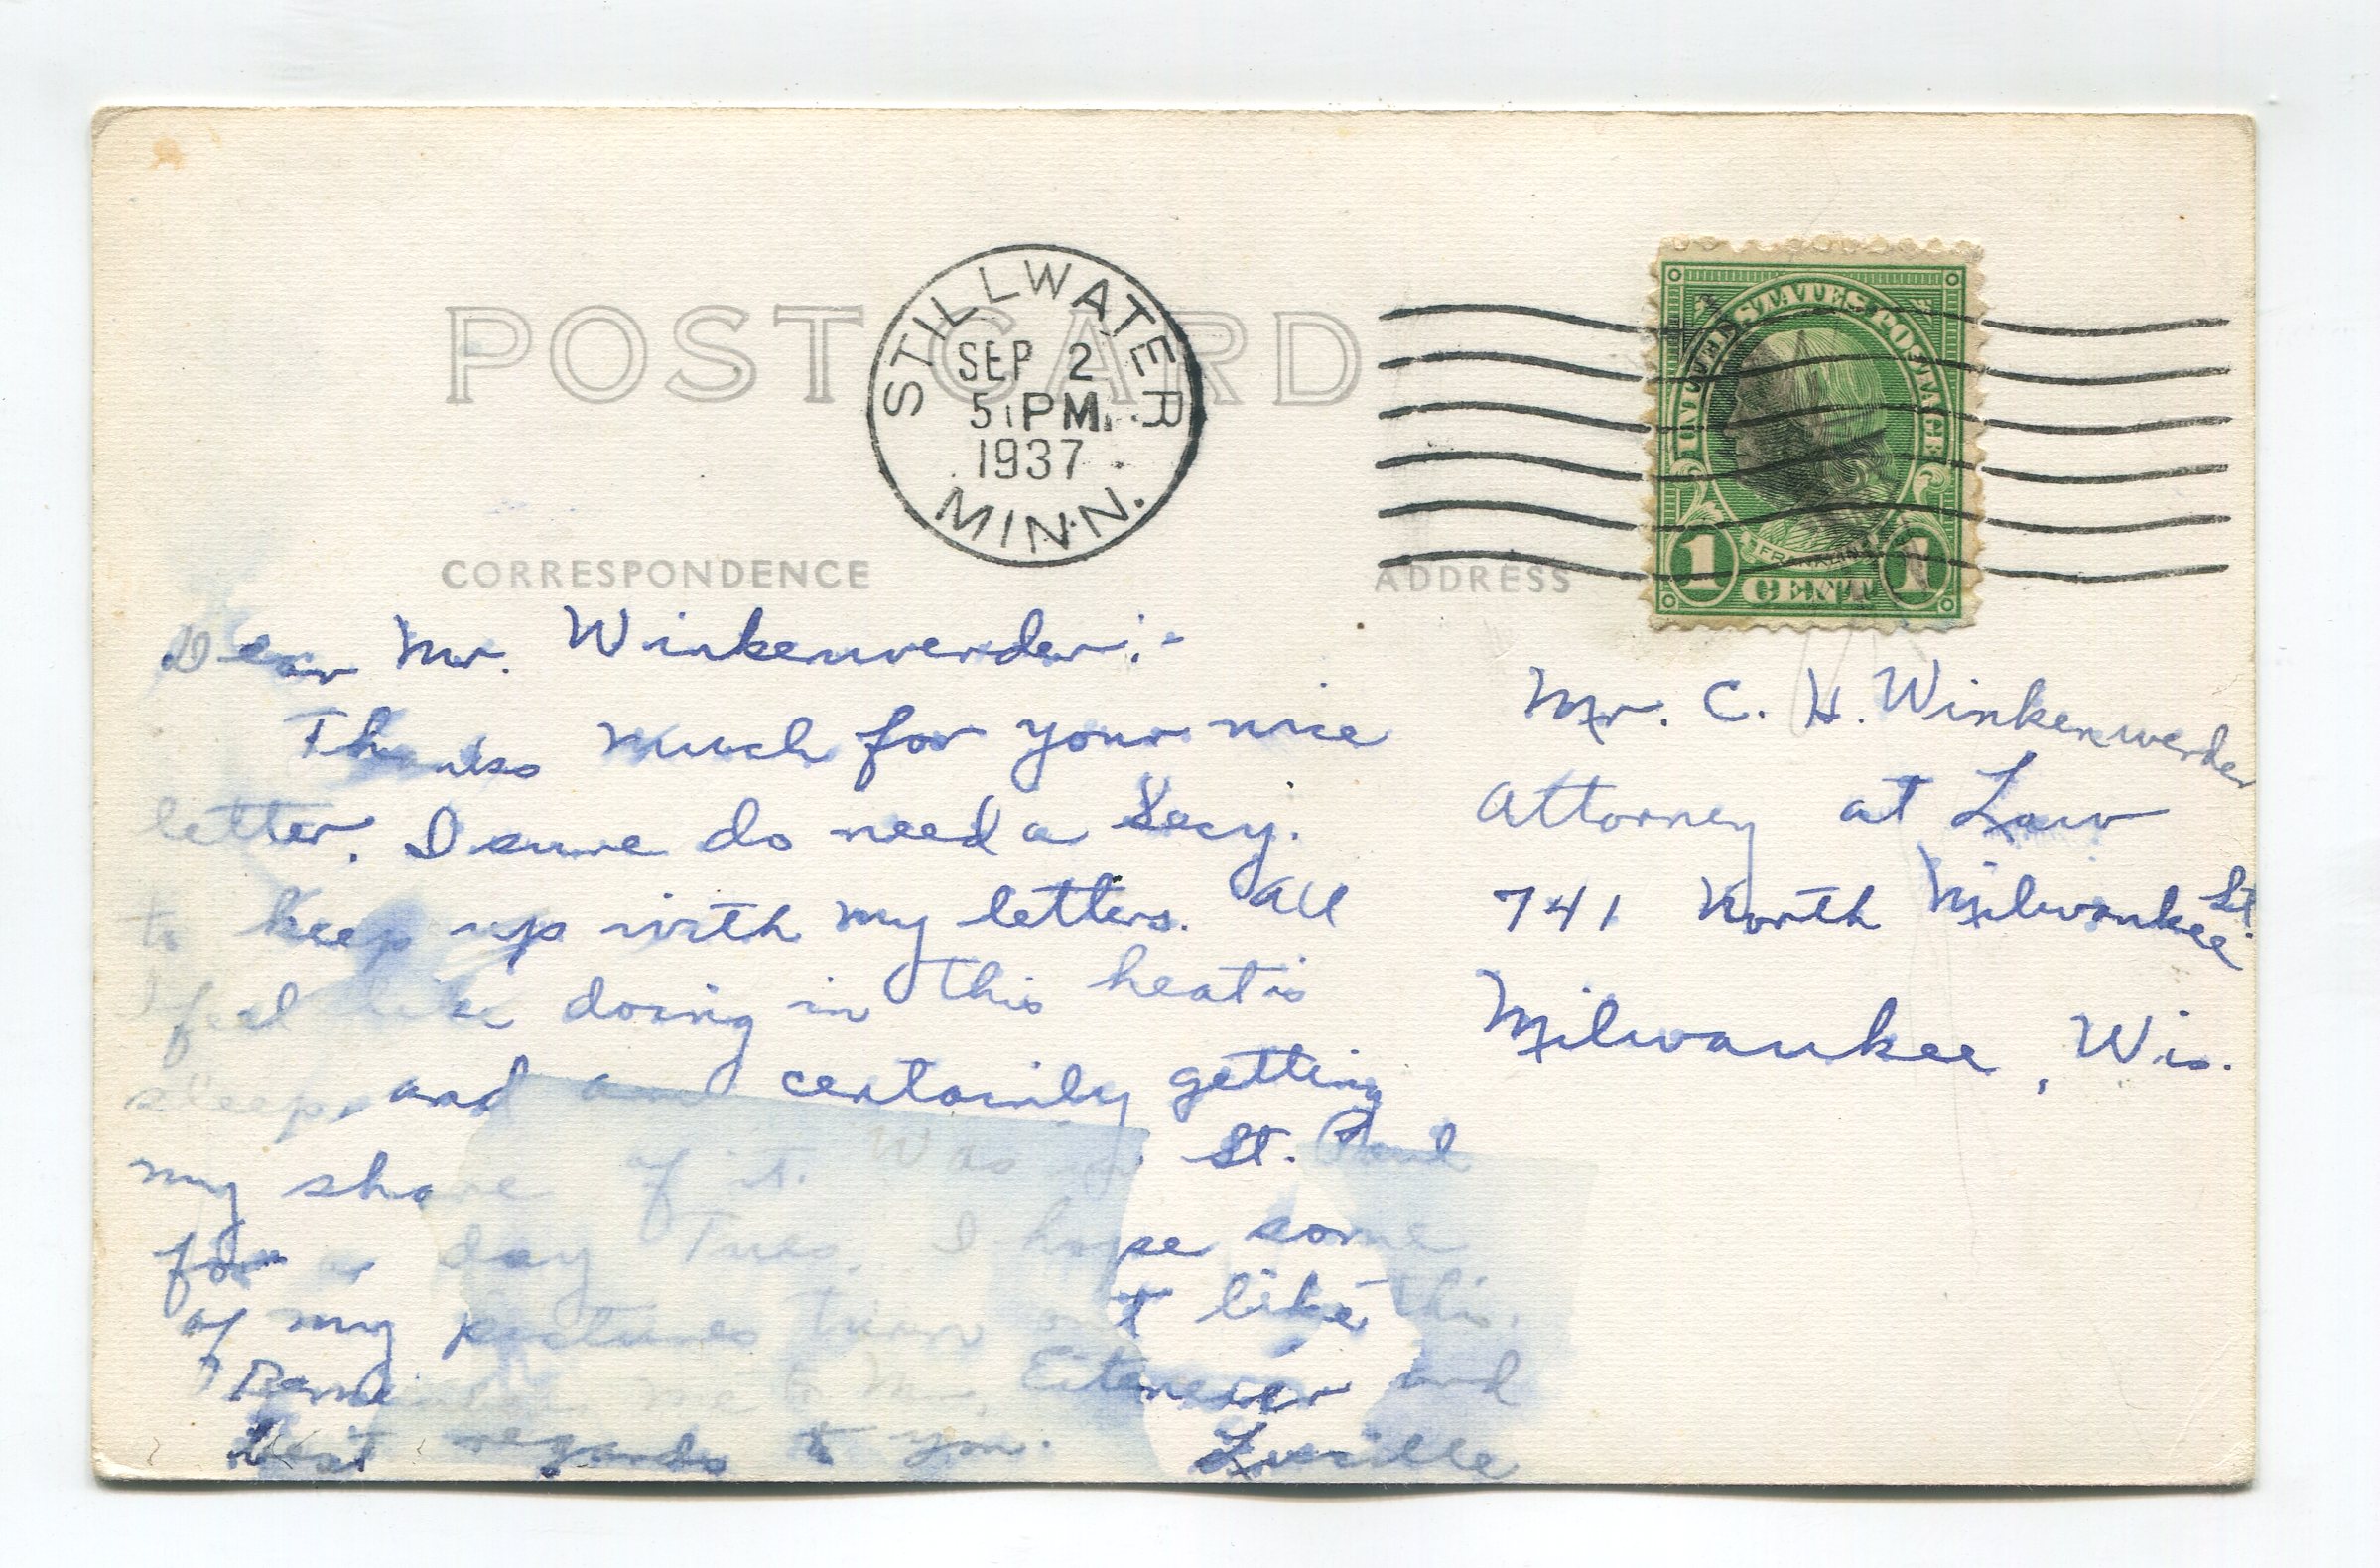 POST CARD
STILLWATER
SEP 2
5 PM
1937
MINN.
UNITED STATES POSTAGE
FRANKLIN
1 CENT 1
CORRESPONDENCE
ADDRESS
Dear Mr. Winkenwerder:-
Thanks much for your nice
letter. I sure do need a Secy.
to keep up with my letters. All
I feel like doing in this heat is
sleep, and am certainly getting
my share of it. Was in St. Paul
for a day Tues. I hope some
of my pictures turn out like this.
Remember me to Mr. and
best regards to you. Lucille
Mr. C. H. Winkenwerder
Attorney at Law
741 North Milwaukee St.
Milwaukee, Wis.